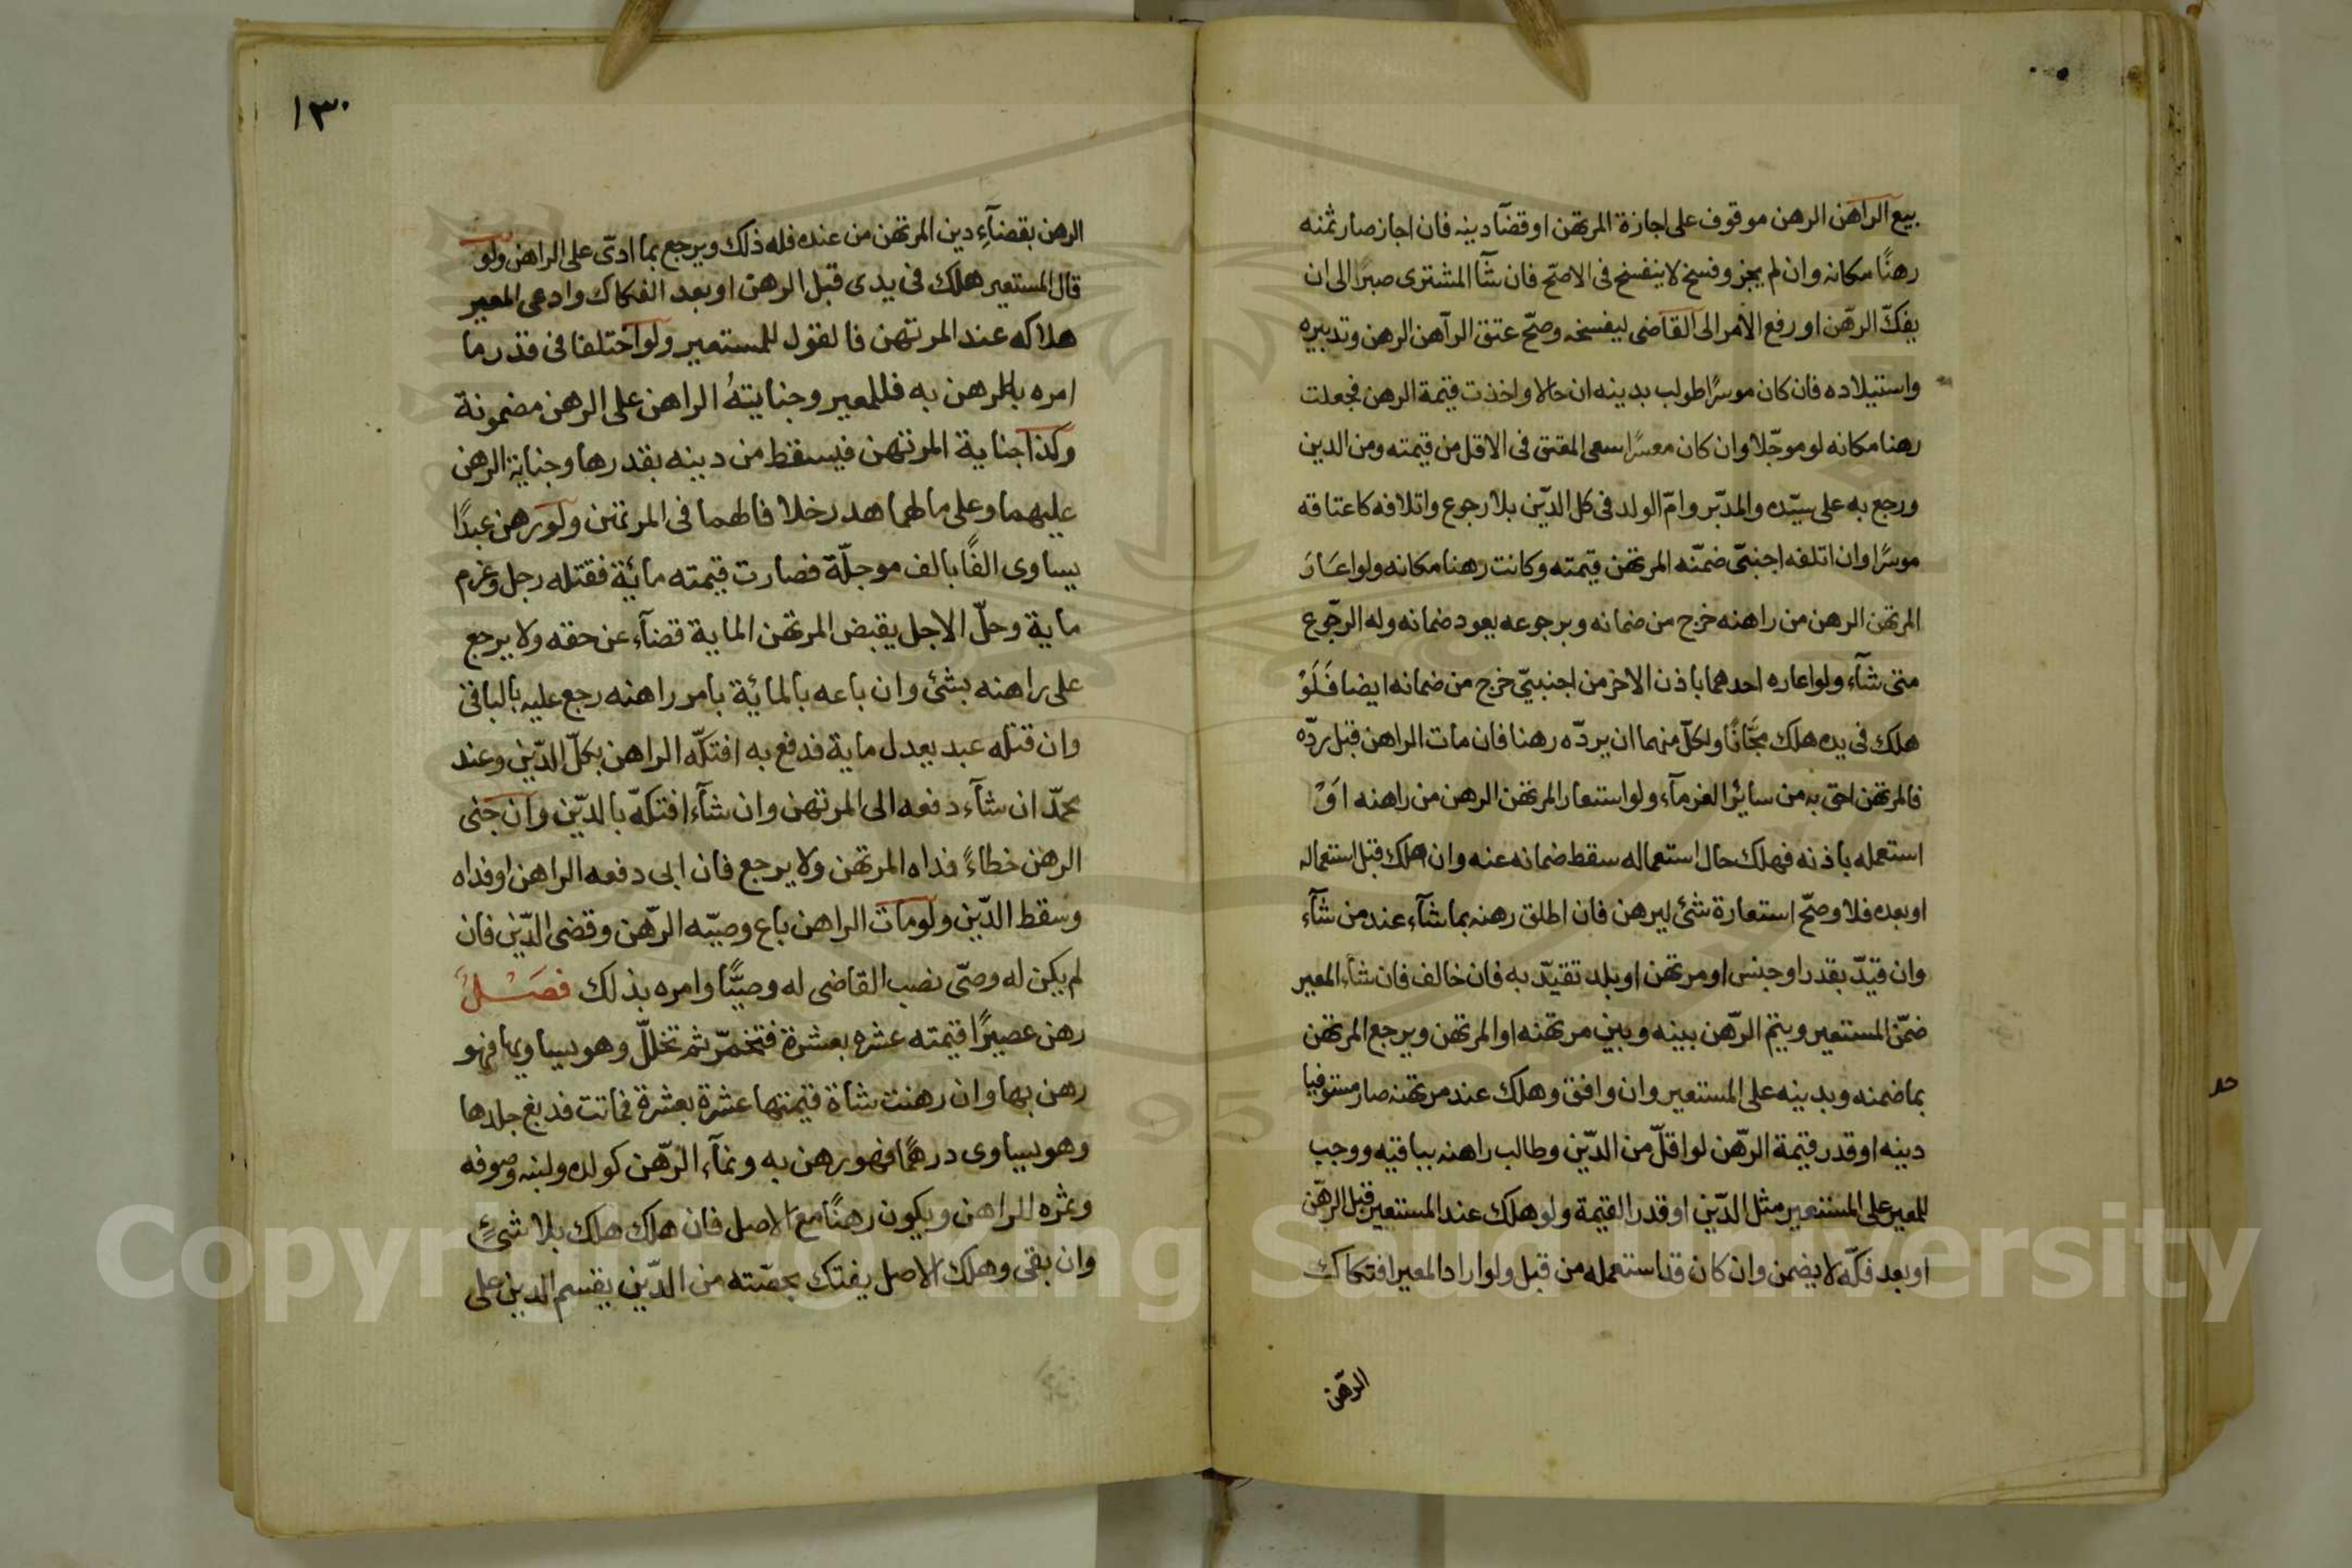 بيع الراهن الرهن موقوف على اجازة المرتهن او قضآ دينه فان اجاز صار ثمنه
رهنًا مكانه وان لم يجز وفسخ لا ينفسخ فى الاصحّ فان شآ المشترى صبرًا الى ان
يفكّ الرهّن او رفع الأمر الى القاضى ليفسخه وصحّ عتق الرآهن الرهن وتدبيره
واستيلاده فان كان موسرًا طولب بدينه ان حالا واخذت قيمة الرهن فجعلت
رهنا مكانه لو موجّلا وان كان معسرًا سعى المعتق فى الاقل من قيمته ومن الدين
ورجع به على سيّده والمدبّر وامّ الولد فى كل الدّين بلا رجوع واتلافه كاعتاقه
موسرًا وان اتلفه اجنبىّ ضمّنه المرتهن قيمته وكانت رهنا مكانه ولو اعَارَ
المرتهن الرهن من راهنه خرج من ضمانه وبرجوعه يعود ضمانه وله الرجّوع
متى شآء ولو اعاره احدهما باذن الاخر من اجنبىّ خرج من ضمانه ايضا فَلَوْ
هلك فى يده هلك مجّانًا ولكلّ منهما ان يردّه رهنا فان مات الراهن قبل ردّه
فالمرتهن احق به من سائر الغرمآء ولو استعار المرتهن الرهن من راهنه اَوْ
استعمله باذنه فهلك حال استعماله سقط ضمانه عنه وان هلك قبل استعماله
او بعده فلا وصحّ استعارة شئ ليرهن فان اطلق رهنه بما شآء عند من شآء
وان قيدّ بقدر او جنس او مرتهن او بلد تقيدّ به فان خالف فان شآء المعير
ضمّن المستعير ويتم الرّهن بينه وبين مرتهنه او المرتهن ويرجع المرتهن
بما ضمنه وبدينه على المستعير وان وافق وهلك عند مرتهنه صار مستوفيا
دينه او قدر قيمة الرّهن لو اقلّ من الدّين وطالب راهنه بباقيه ووجب
للمعير على المستعير مثل الدّين او قدر القيمة ولو هلك عند المستعير قبل الرهّن
او بعد فكّه لا يضمن وان كان قد استعمله من قبل ولو اراد المعير افتكاك
الرهّن
١٣٠
الرهن بقضآءِ دين المرتهن من عنده فله ذلك ويرجع بما ادىّ على الراهن ولو
قال المستعير هلك فى يدى قبل الرهن او بعد الفكاك وادعى المعير
هلاكه عند المرتهن فالقول للمستعير ولو اختلفا فى قدر ما
امره بالرهن به فللمعير وجنايتهُ الراهن على الرهن مضمونة
وكذا جناية المرتهن فيسقط من دينه بقدرها وجناية الرهن
عليهما وعلى مالهما هدر خلا فالهما فى المرتهن ولو رهن عبدًا
يساوى الفًا بالف موجلّة فصارت قيمته مائة فقتله رجل وغرم
ماية وحلّ الاجل يقبض المرتهن الماية قضآء عن حقه ولا يرجع
على راهنه بشئ وان باعه بالمائة بامر راهنه رجع عليه بالباقى
وان قتله عبد يعدل ماية فدفع به افتكّه الراهن بكلّ الدّين وعند
محمدّ ان شآء دفعه الى المرتهن وان شآء افتكهّ بالدّين وان جنى
الرهن خطاءً فداه المرتهن ولا يرجع فان ابى دفعه الراهن او فداه
وسقط الدّين ولو مات الراهن باع وصيّه الرّهن وقضى الدّين فان
لم يكن له وصىّ نصب القاضى له وصيًّا وامره بذلك فصَـْـلٌ
رهن عصيرًا قيمته عشره بعشرة فتخمرّ ثم تخلّل وهو يساويها فهو
رهن بها وان رهنت شاة قيمتها عشرة بعشرة فماتت فدبغ جلدها
وهو يساوى درهمًا فهو رهن به ونمآء الرّهن كولده ولبنه وصوفه
وثمره للراهن ويكون رهنًا مع الاصل فان هلك هلك بلا شئٍ
وان بقى وهلك الاصل يفتك بحصّته من الدّين يقسم الدين على
Copyright © King Saud University